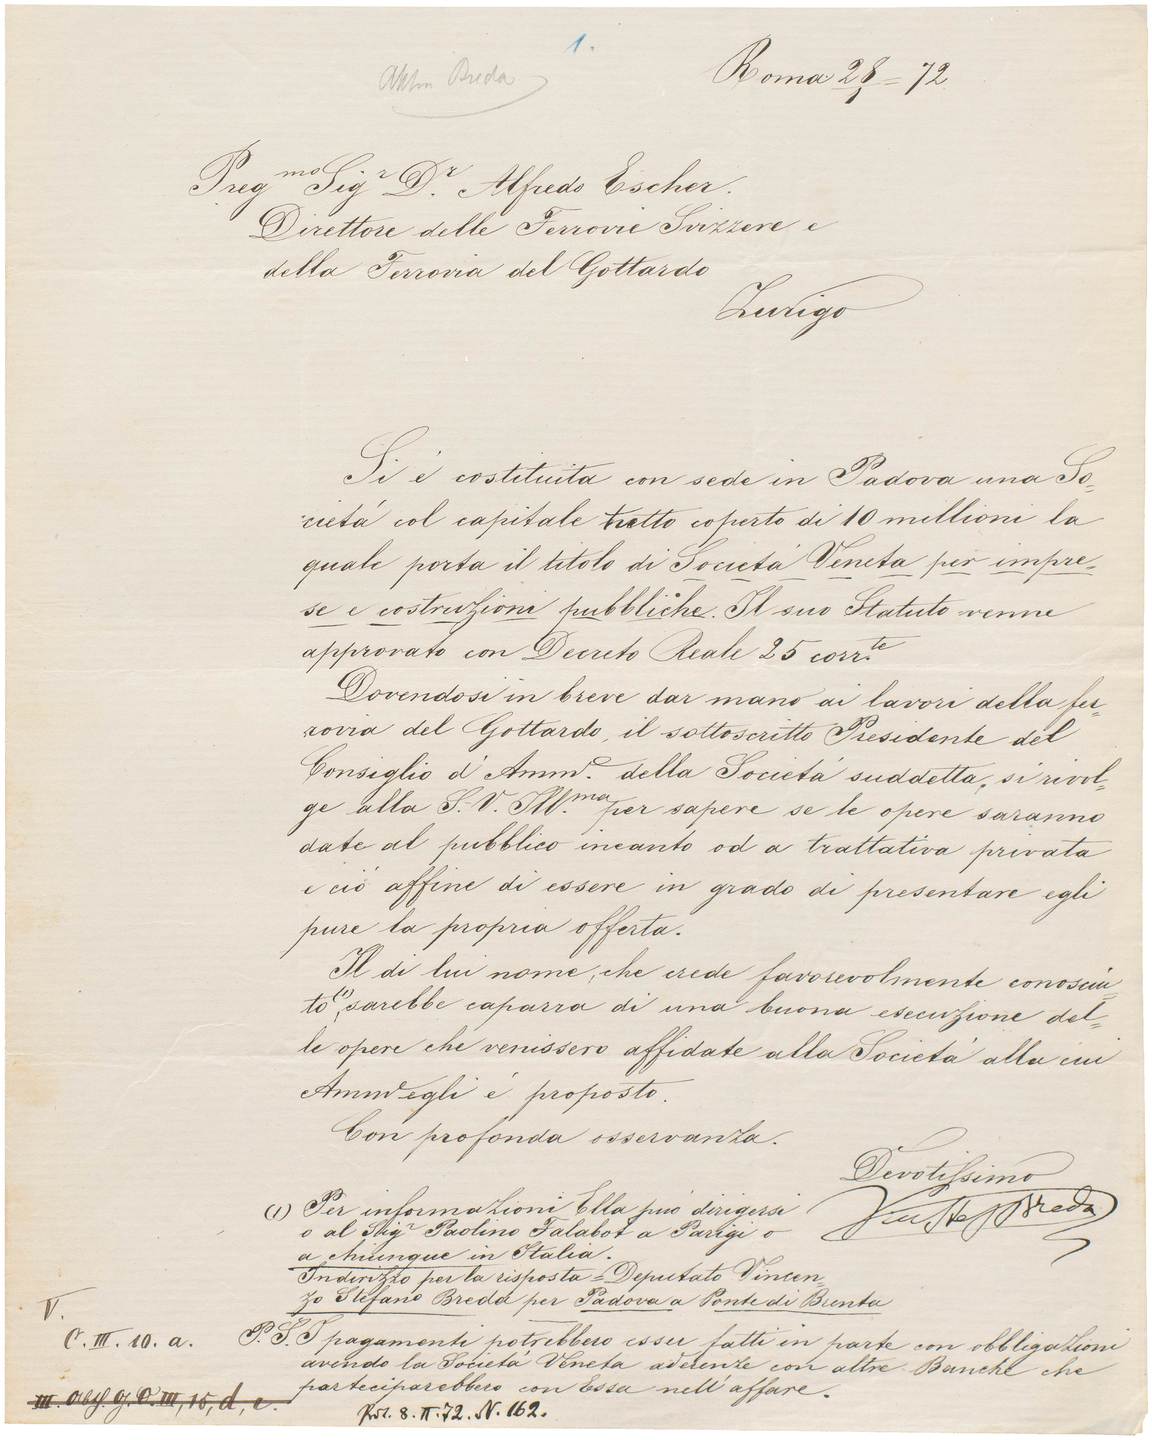 1.
Breda
Roma 28/1 = 72
Pregmo Sigr Dr. Alfredo Escher.
Direttore delle Ferrovie Svizzere e
della Ferrovia del Gottardo
Zurigo
Si è costituita con sede in Padova una So-
cietà col capitale tutto coperto di 10 millioni la
quale porta il titolo di Società Veneta per impre-
se e costruzioni pubbliche. Il suo Statuto venne
approvato con Decreto Reale 25 corr.te
Dovendosi in breve dar mano ai lavori della fer-
rovia del Gottardo, il sottoscritto Presidente del
Consiglio d'Amme. della Società suddetta, si rivol-
ge alla S. V. Ill.ma per sapere se le opere saranno
date al pubblico incanto od a trattativa privata
e ciò affine di essere in grado di presentare egli
pure la propria offerta.
Il di lui nome, che crede favorevolmente conosciu-
to(1), sarebbe caparra di una buona esecuzione del-
le opere che venissero affidate alla Società alla cui
Amme egli è proposto.
Con profonda osservanza.
Devotissimo
Vin Stef Breda
(1) Per informazioni Ella può dirigersi
o al Sigr Paolino Talabot a Parigi o
a chiunque in Italia.
Indirizzo per la risposta = Deputato Vincen-
zo Stefano Breda per Padova a Ponte di Brenta
P. S. I pagamenti potrebbero esser fatti in parte con obbligazioni
avendo la Società Veneta aderenze con altre Banche che
parteciparebbero con Essa nell'affare.
V.
C. III. 10. a.
8. II. 72. N. 162.